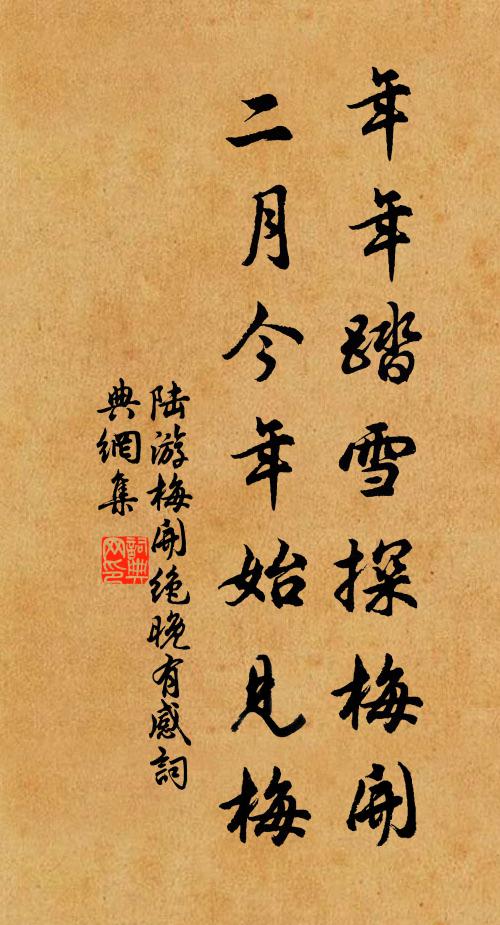 年年踏雪探梅開
二月今年始見梅
陆游梅開绝晚有感詞
典網集
詞典
网印